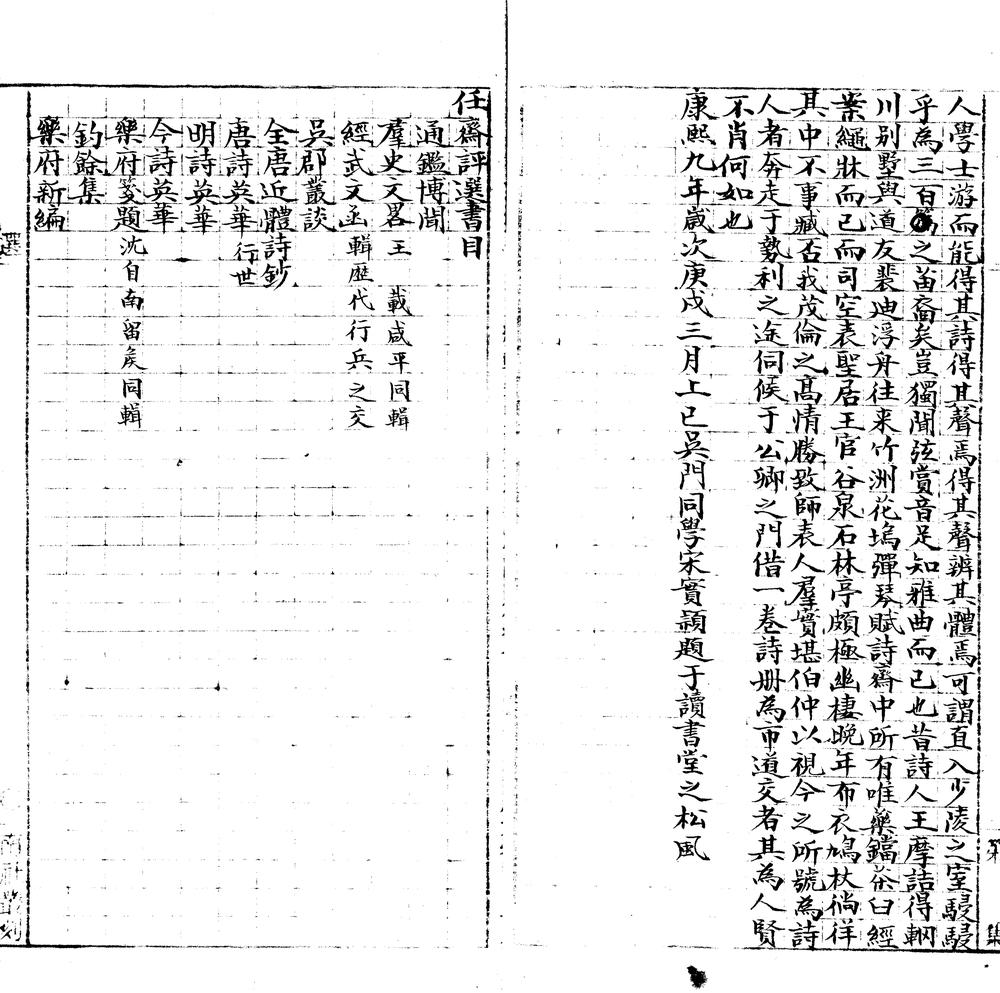 人學士游而能得其詩得其聲焉得其聲辨其體焉可謂直入少陵之室駸駸
乎為三百篇之苗裔矣豈獨聞弦賞音足知雅曲而已也昔詩人王摩詰得輞
川別墅與道友裴迪浮舟往来竹洲花塢彈琴賦詩齋中所有唯藥鐺茶臼經
案繩牀而已而司空表聖居王官谷泉石林亭頗極幽棲晚年布衣鳩杖徜徉
其中不事臧否我茂倫之高情勝致師表人羣實堪伯仲以視今之所號為詩
人者奔走于勢利之途伺候于公卿之門借一卷詩册為市道交者其為人賢
不肖何如也
康熙九年歲次庚戌三月上巳吳門同學宋實穎題于讀書堂之松風
任齋評選書目
通鑑博聞
羣史文畧王 載咸平同輯
經武文函輯歷代行兵之文
吳郡叢談
全唐近體詩鈔
唐詩英華行世
明詩英華
今詩英華
樂府菱題沈自南留矦同輯
釣餘集
樂府新編
選